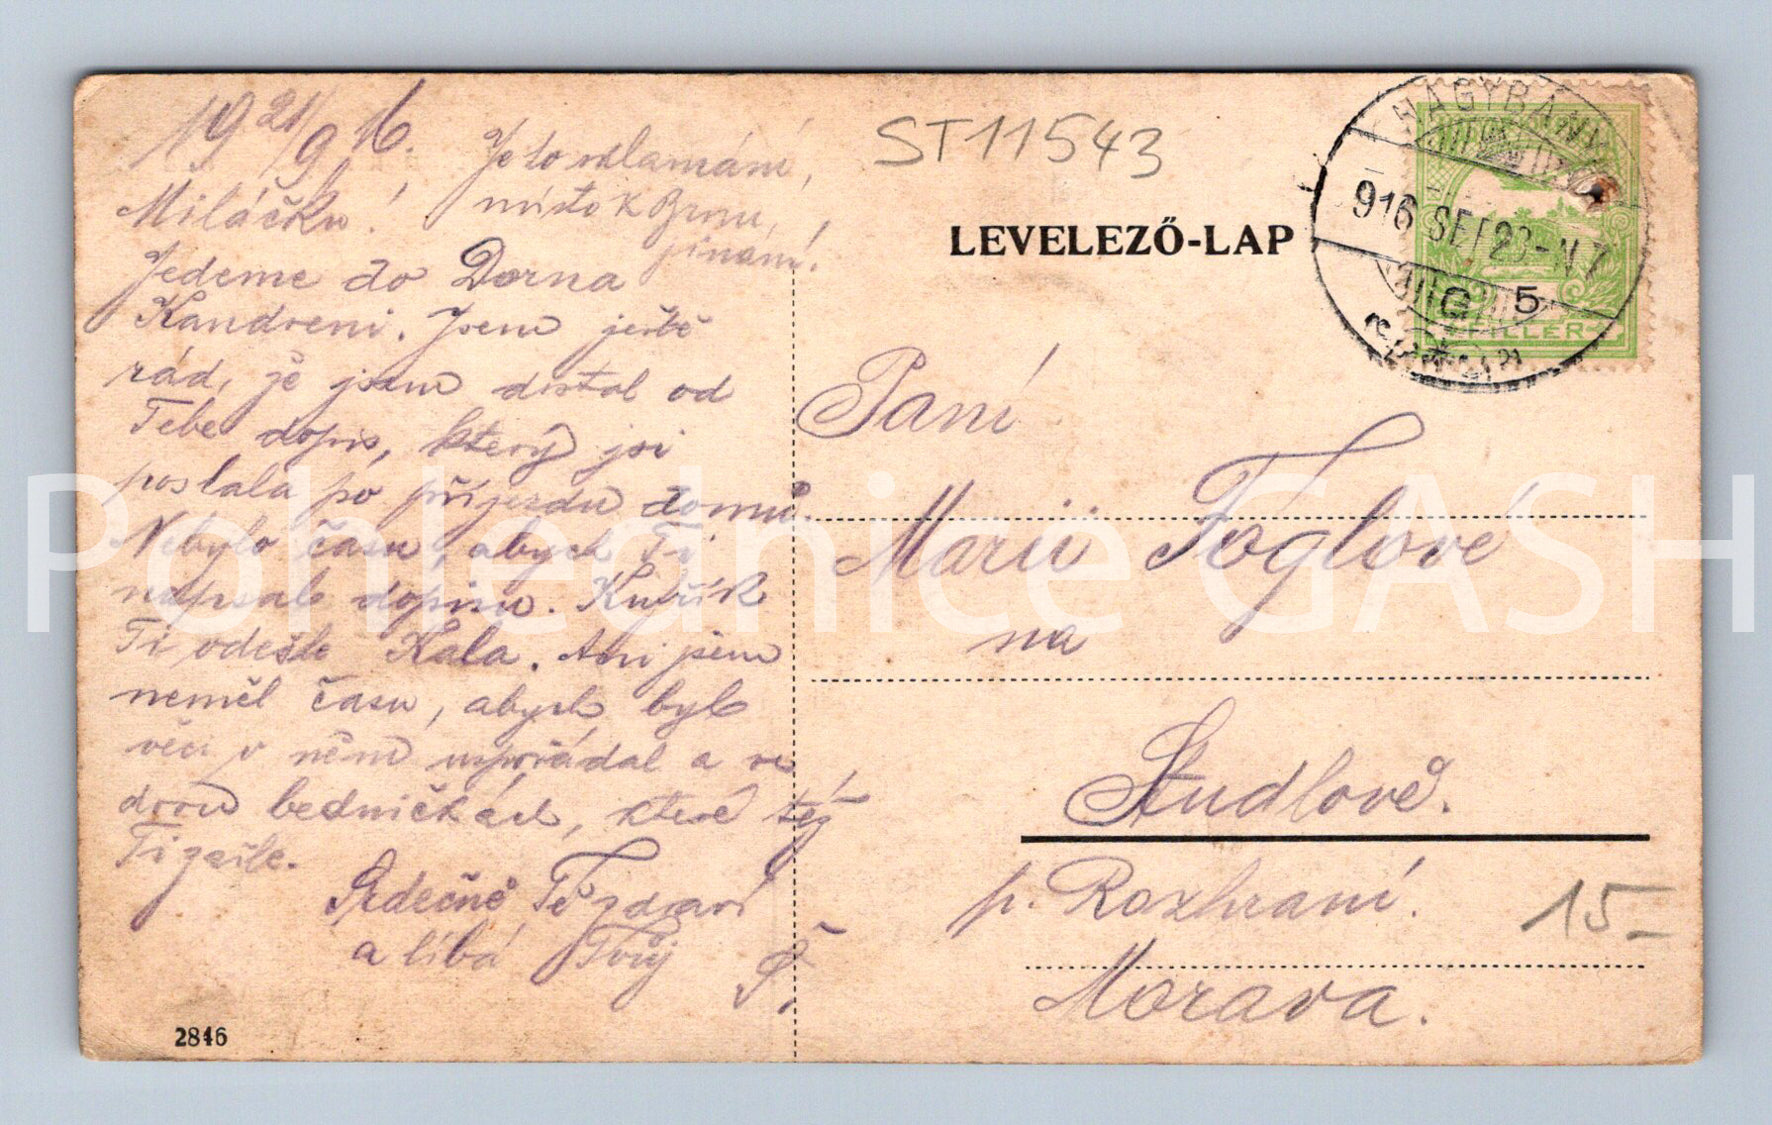 19 21/9 16.
Je to zklamání,
místo k Brnu,
jinam!
Miláčku!
Jedeme do Dorna
Kandreni. Jsem ještě
rád, že jsem dostal od
Tebe dopis, který jsi
poslala po příjezdu domů.
Nebylo času, abych Ti
napsal dopisu. Kufřík
Ti odešle Kala. Ani jsem
neměl času, abych byl
věci v něm uspořádal a ve
dvou bedničkách, které též
Ti zašle.
Srdečně Tě zdraví
a líbá Tvůj
ST11543
LEVELEZŐ-LAP
NAGYBÁNYA
916 SEP 23-N 7
G 5
FILLÉR
Paní
Marii Foglové
na
Študlově.
p. Rozhraní.
Morava.
15-
2846
Pohlednice GASH